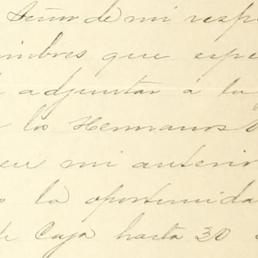 Señor de mi resp
mbres que espe
adjuntar a la
los Hermanos
en mi anterio
s la oportunida
de Caja hasta 30